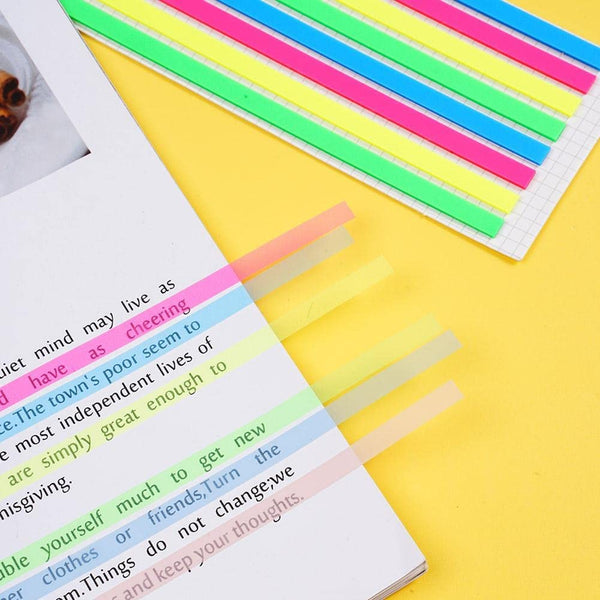 uiet mind may live as
d have as cheering
ce.The town's poor seem to
e most independent lives of
are simply great enough to
nisgiving.
able yourself much to get new
er clothes or friends,Turn the
em.Things do not change;we
s and keep your thoughts.